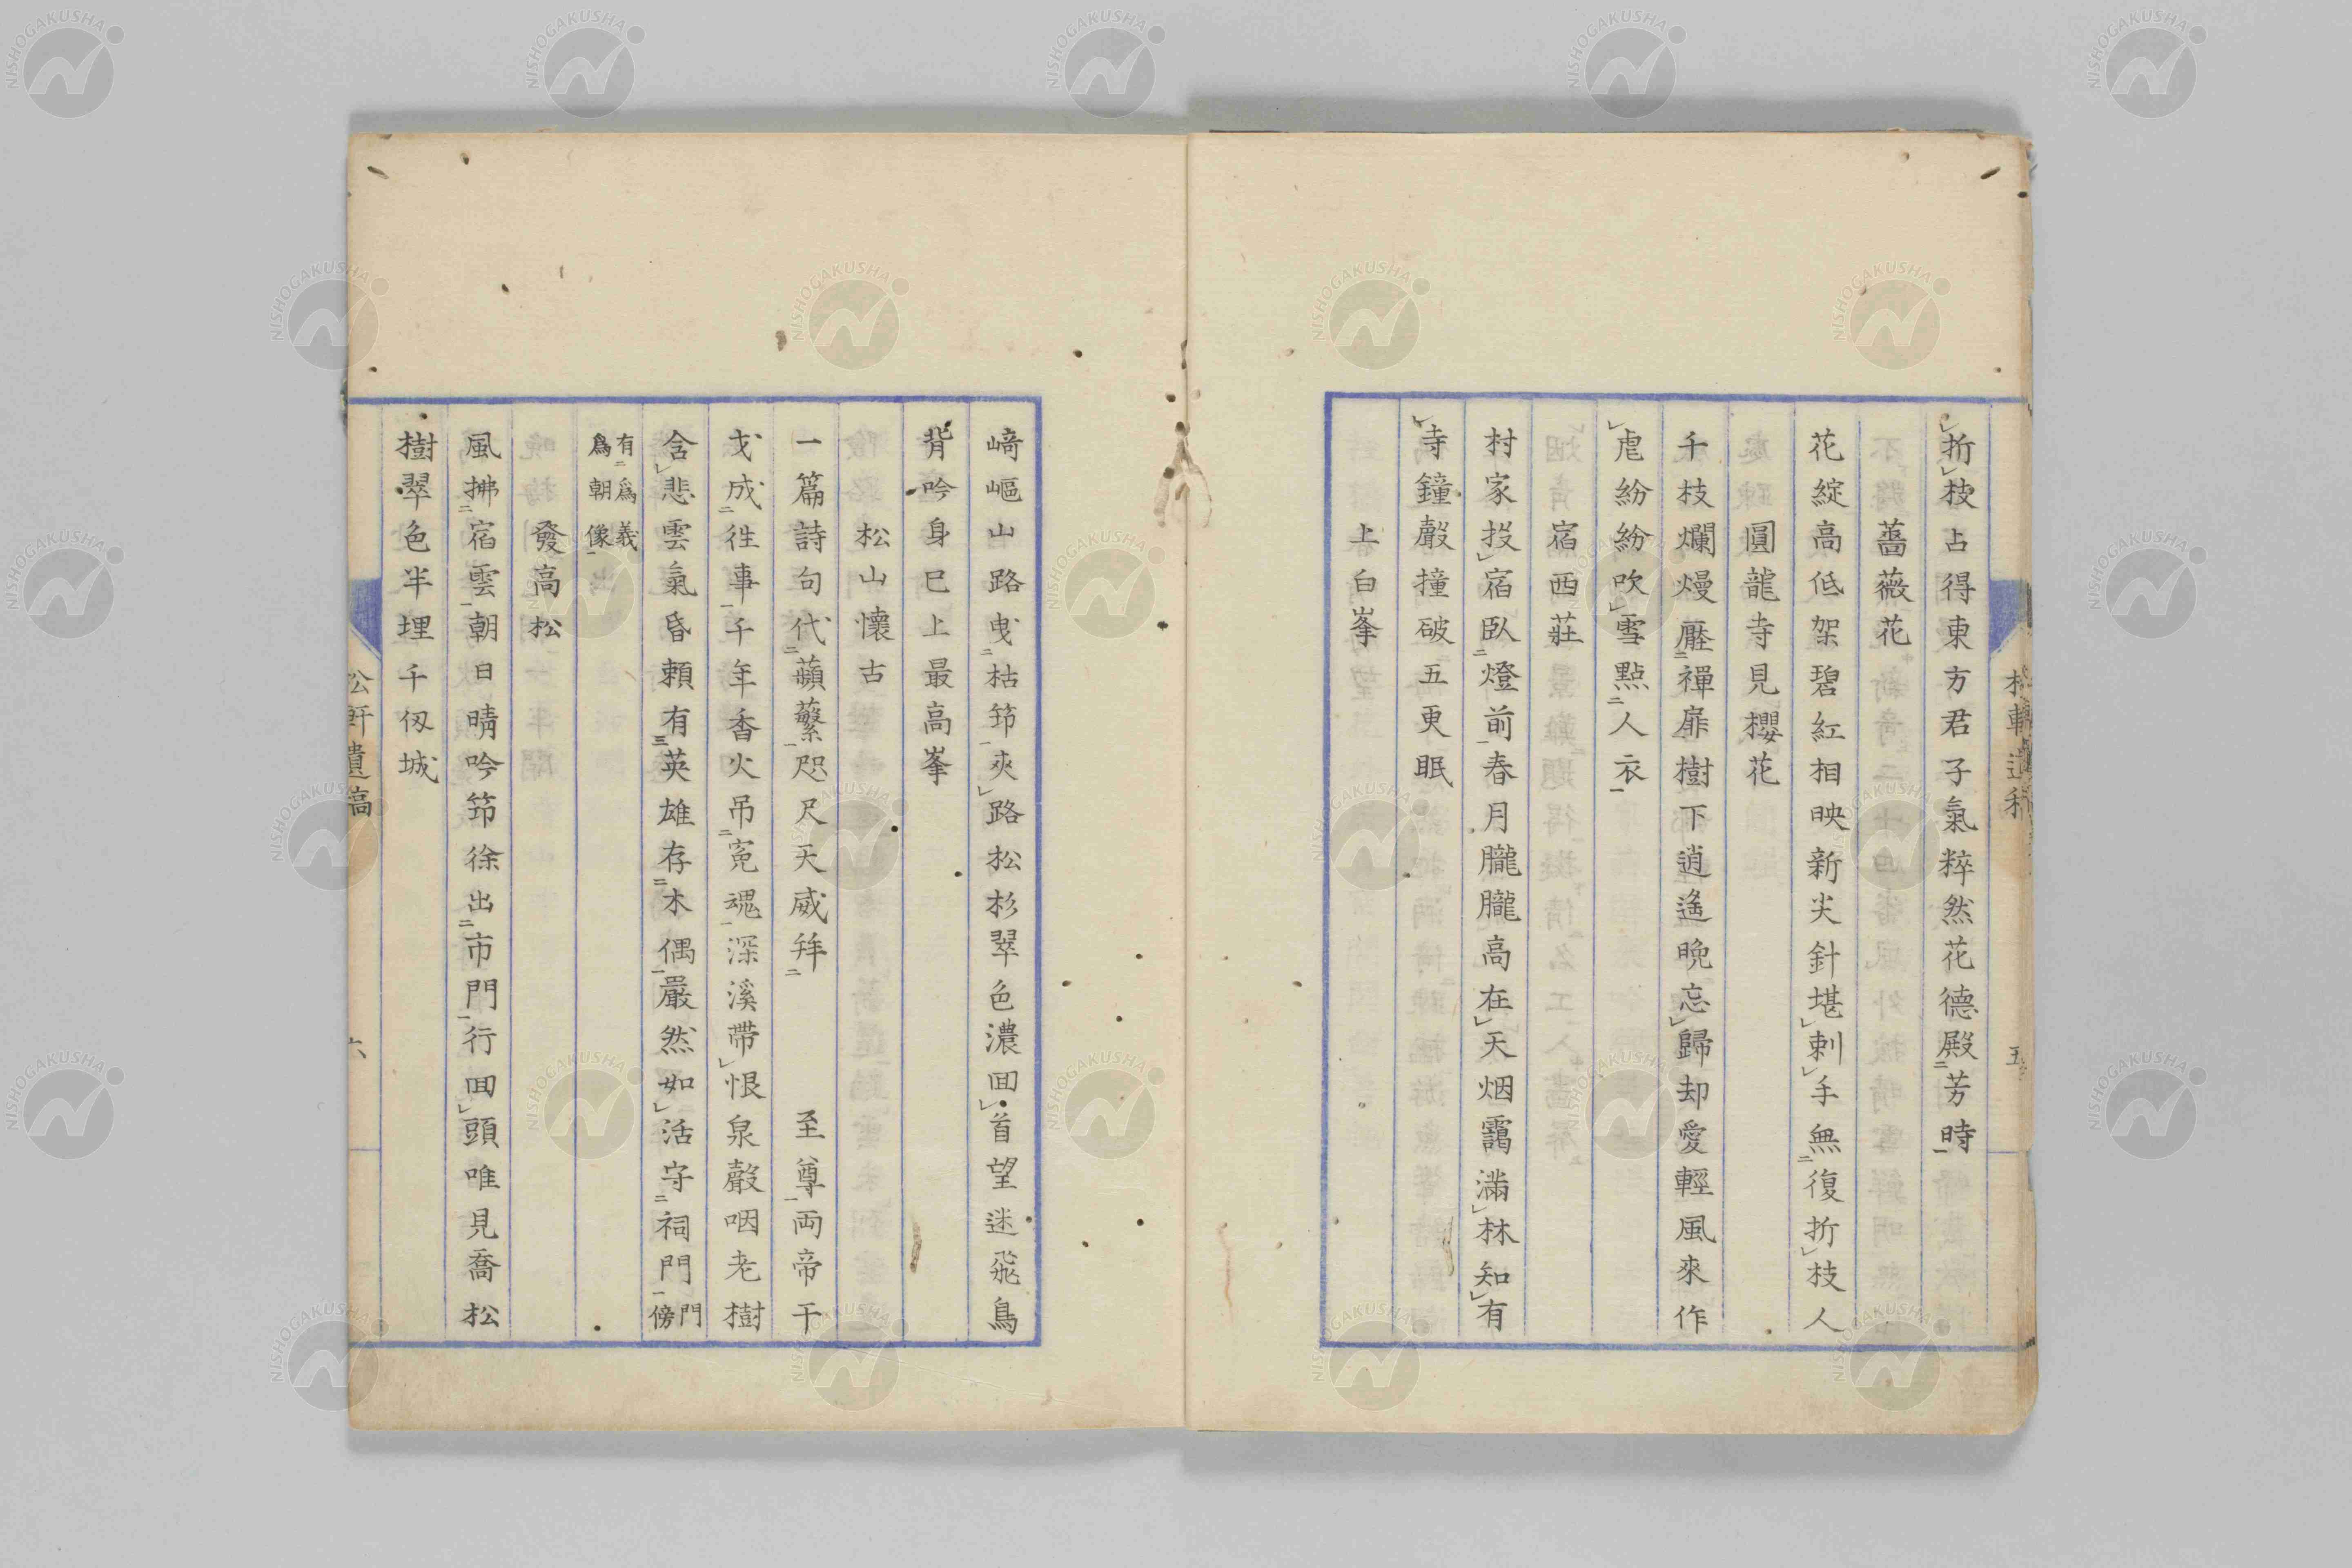 折枝占得東方君子氣粹然花德殿芳時
薔薇花
花綻高低架碧紅相映新尖針堪刺手無復折枝人
圓龍寺見櫻花
千枝爛熳壓禪扉樹下逍遙晚忘歸却愛輕風來作
虐紛紛吹雪點人衣
宿西莊
村家投宿臥燈前春月朧朧高在天烟靄滿林知有
寺鐘聲撞破五更眠
上白峯
五
崎嶇山路曳枯筇夾路松杉翠色濃回首望迷飛鳥
背吟身已上最高峯
松山懷古
一篇詩句代蘋蘩咫尺天威拜至尊両帝干
戈成徃事千年香火吊寃魂深溪帶恨泉聲咽老樹
含悲雲氣昏賴有英雄存木偶嚴然如活守祠門門傍
有爲義
爲朝像
發高松
風拂宿雲朝日晴吟筇徐出市門行回頭唯見喬松
樹翠色半埋千仭城
松軒遺稿
六
NISHOGAKUSHA